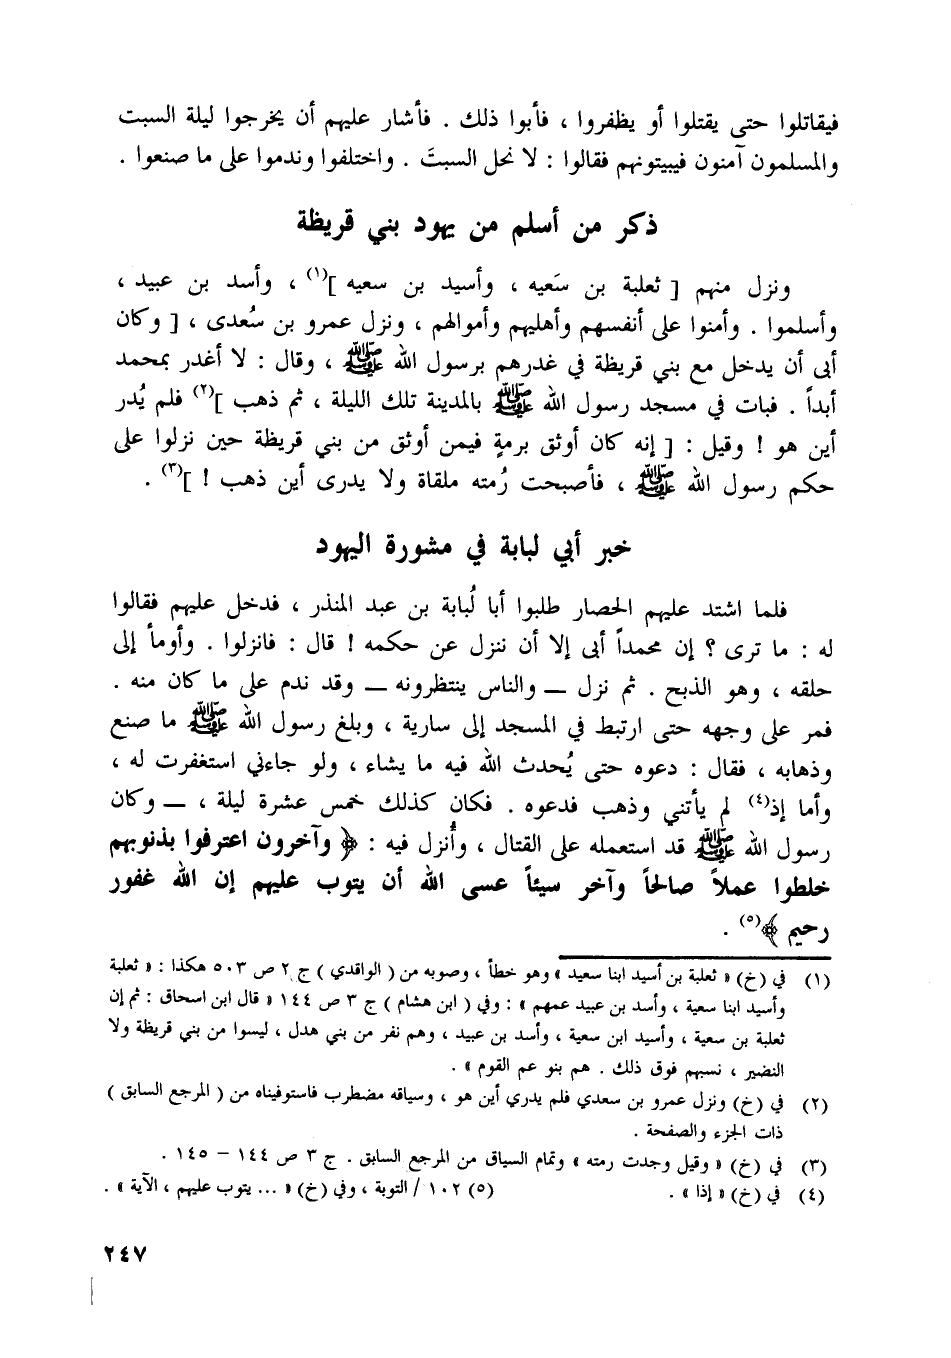 فيقاتلوا حتى يقتلوا أو يظفروا ، فأبوا ذلك . فأشار عليهم أن يخرجوا ليلة السبت
والمسلمون آمنون فيبيتونهم فقالوا : لا نحل السبتَ . واختلفوا وندموا على ما صنعوا .
ذكر من أسلم من يهود بني قريظة
ونزل منهم [ ثعلبة بن سَعيه ، وأسيد بن سعيه ](١) ، وأسد بن عبيد ،
وأسلموا . وأمنوا على أنفسهم وأهليهم وأموالهم ، ونزل عمرو بن سُعدى ، [ وكان
أبى أن يدخل مع بني قريظة في غدرهم برسول الله ﷺ ، وقال : لا أغدر بمحمد
أبداً . فبات في مسجد رسول الله ﷺ بالمدينة تلك الليلة ، ثم ذهب ](٢) فلم يُدر
أين هو ! وقيل : [ إنه كان أوثق برمةٍ فيمن أوثق من بني قريظة حين نزلوا على
حكم رسول الله ﷺ ، فأصبحت رُمته ملقاة ولا يدرى أين ذهب ! ](٣) .
خبر أبي لبابة في مشورة اليهود
فلما اشتد عليهم الحصار طلبوا أبا لُبابة بن عبد المنذر ، فدخل عليهم فقالوا
له : ما ترى ؟ إن محمداً أبى إلا أن ننزل عن حكمه ! قال : فانزلوا . وأومأ إلى
حلقه ، وهو الذبح . ثم نزل ــ والناس ينتظرونه ــ وقد ندم على ما كان منه .
فمر على وجهه حتى ارتبط في المسجد إلى سارية ، وبلغ رسول الله ﷺ ما صنع
وذهابه ، فقال : دعوه حتى يُحدث الله فيه ما يشاء ، ولو جاءني استغفرت له ،
وأما إذ(٤) لم يأتني وذهب فدعوه . فكان كذلك خمس عشرة ليلة ، ــ وكان
رسول الله ﷺ قد استعمله على القتال ، وأُنزل فيه : ﴿ وآخرون اعترفوا بذنوبهم
خلطوا عملاً صالحاً وآخر سيئاً عسى الله أن يتوب عليهم إن الله غفور
رحيم ﴾(٥) .
(١) في (خ) « ثعلبة بن أسيد ابنا سعيد » وهو خطأ ، وصوبه من ( الواقدي ) ج ٢ ص ٥٠٣ هكذا : « ثعلبة
وأسيد ابنا سعية ، وأسد بن عبيد عمهم » : وفي ( ابن هشام ) ج ٣ ص ١٤٤ « قال ابن اسحاق : ثم إن
ثعلبة بن سعية ، وأسيد ابن سعية ، وأسد بن عبيد ، وهم نفر من بني هدل ، ليسوا من بني قريظة ولا
النضير ، نسبهم فوق ذلك . هم بنو عم القوم » .
(٢) في (خ) ونزل عمرو بن سعدي فلم يدري أين هو ، وسياقه مضطرب فاستوفيناه من ( المرجع السابق )
ذات الجزء والصفحة .
(٣) في (خ) « وقيل وجدت رمته » وتمام السياق من المرجع السابق . ج ٣ ص ١٤٤ – ١٤٥ .
(٤) في (خ) « إذا » . (٥) ١٠٢ / التوبة ، وفي (خ) « ... يتوب عليهم ، الآية » .
٢٤٧